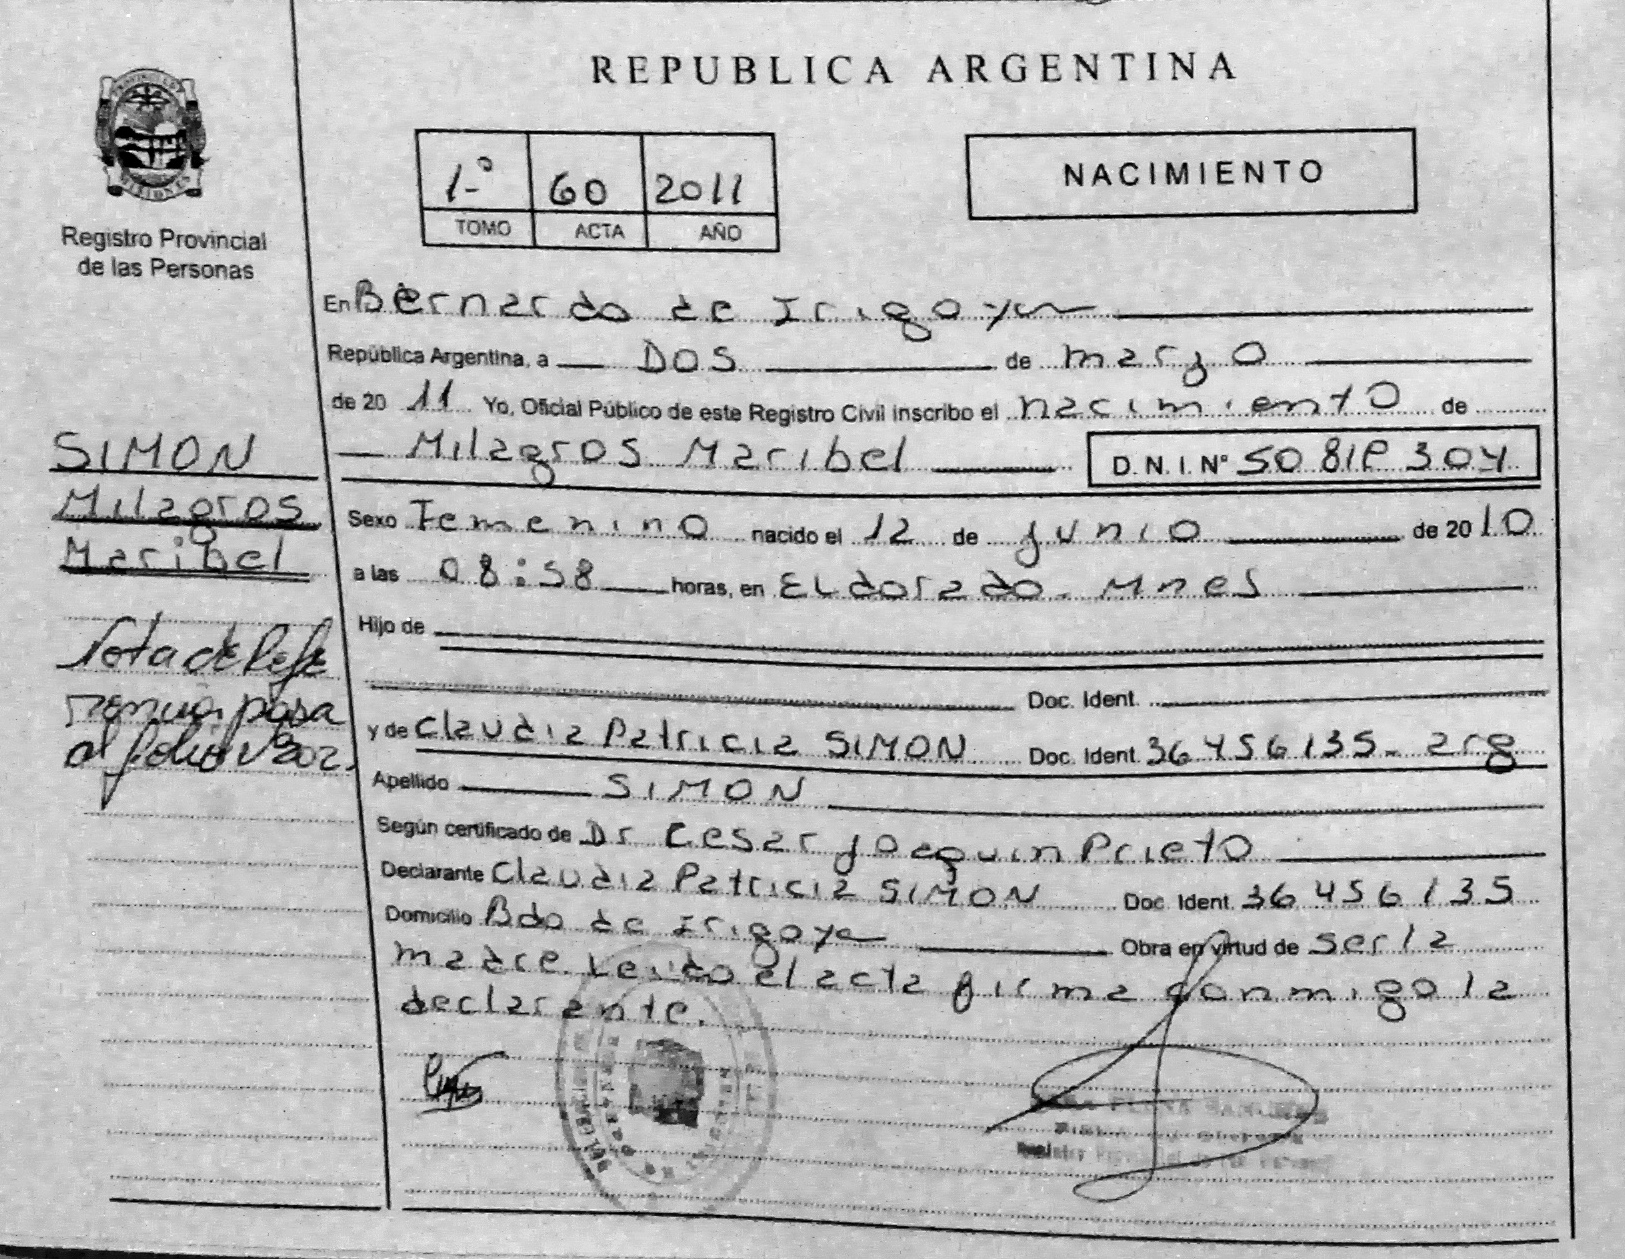 REPUBLICA ARGENTINA
PROVINCIA DE
MISIONES
Registro Provincial
de las Personas
1-º 60 2011
TOMO ACTA AÑO
NACIMIENTO
En Bernardo de Irigoyen
República Argentina, a DOS de marzo
de 20 11 Yo, Oficial Público de este Registro Civil inscribo el nacimiento de
Milagros Maribel D.N.I. Nº
SIMON
Milagros
Maribel
Sexo Femenino nacido el 12 de junio de 2010
a las 08:58 horas, en Eldorado - Mnes
Hijo de
Doc. Ident.
y de Claudia Patricia SIMON Doc. Ident. 36456135- arg
Apellido SIMON
Según certificado de Dr Cesar Joaquin Prieto
Declarante Claudia Patricia SIMON Doc. Ident. 36 456 135
Domicilio Bdo de Irigoyen Obra en virtud de ser la
madre leido el acta firma conmigo la
declarante.
Nota de Refe
rencia pasa
al folio Nº 302